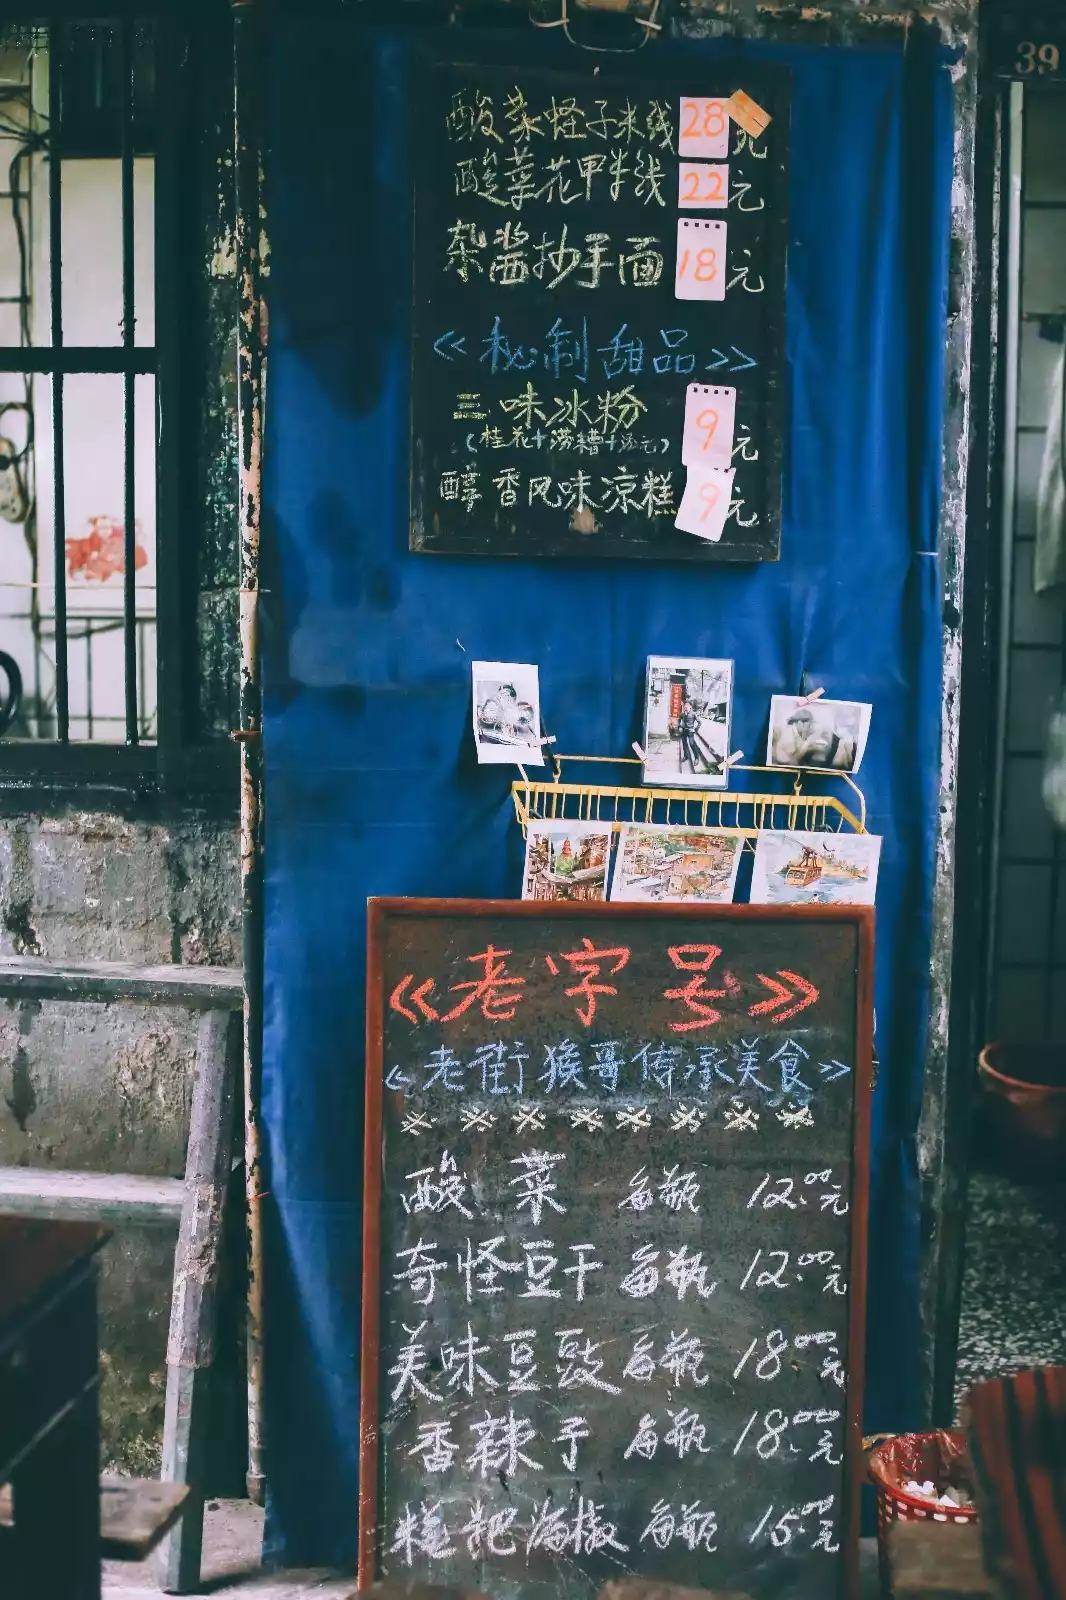 39
酸菜怪子米线 28元
酸菜花甲米线 22元
杂酱抄手面 18元
<<秘制甜品>>
三味冰粉 9元
(桂花+涝糟+汤元)
醇香风味凉糕 9元
<<老字号>>
<<老街猴哥傳承美食>>
酸菜 每瓶 12.00元
奇怪豆干 每瓶 12.00元
美味豆豉 每瓶 18.00元
香辣子 每瓶 18.00元
糍粑海椒 每瓶 15.00元